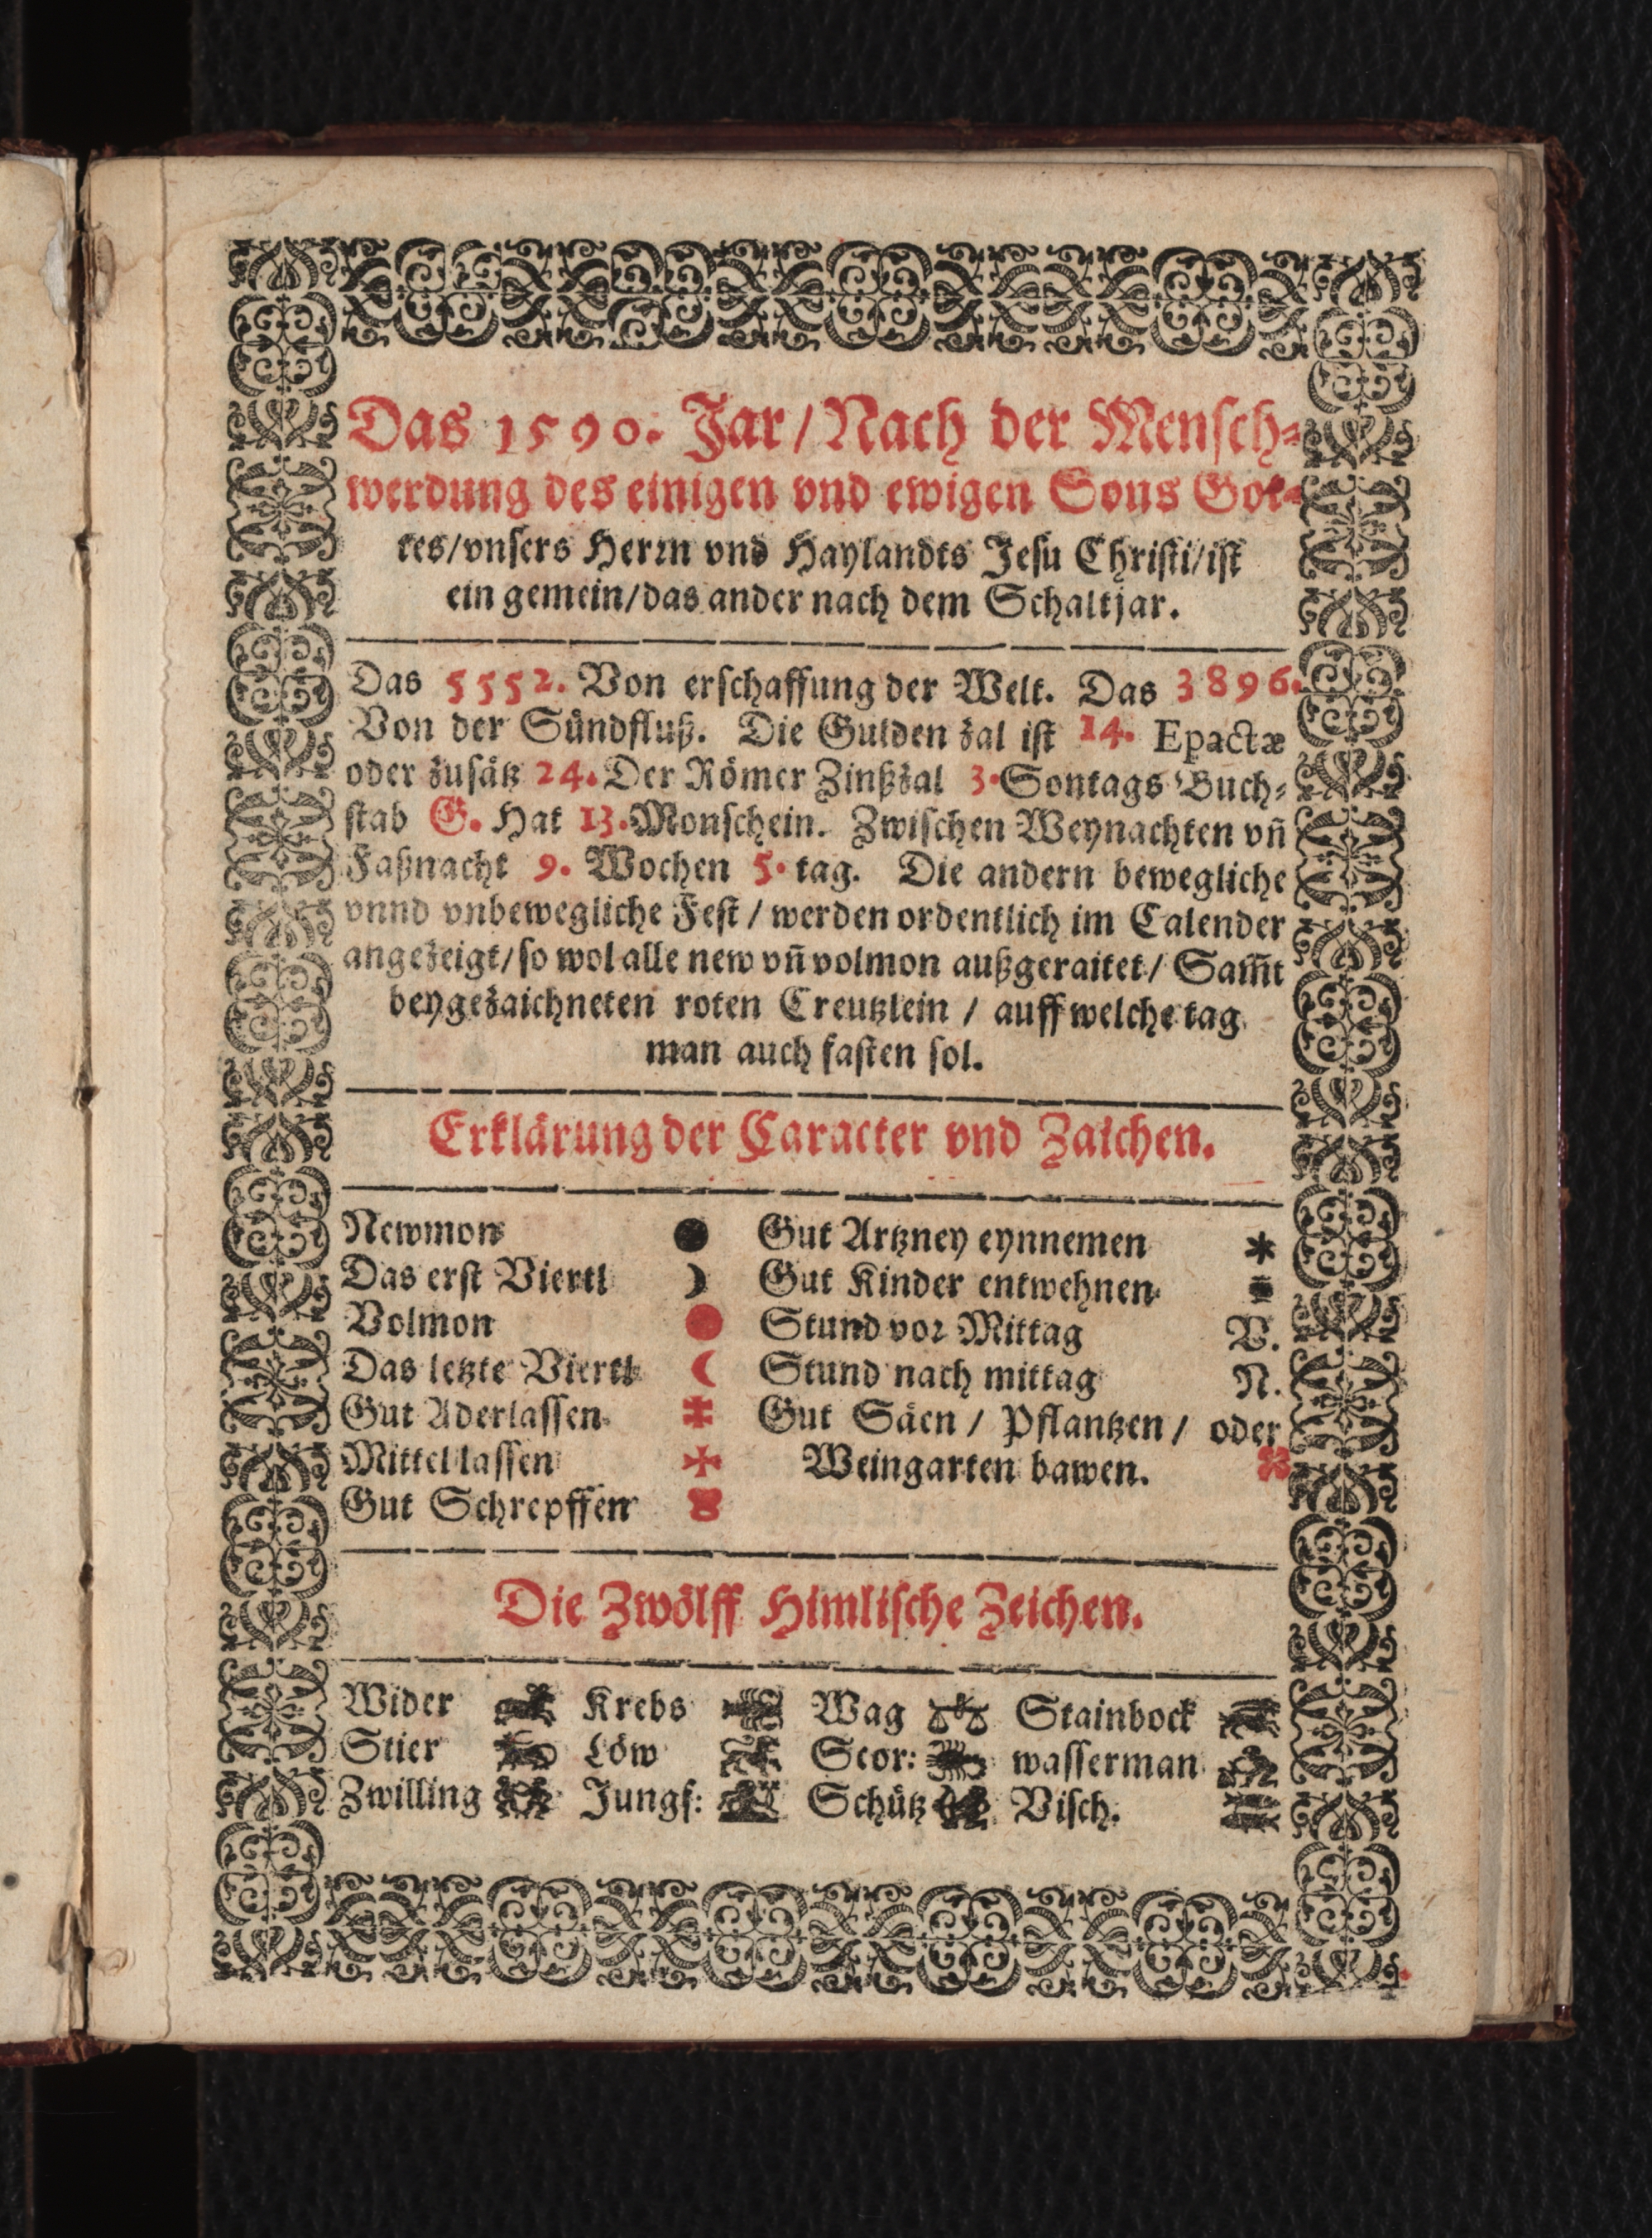 Das 1590. Jar / Nach der Mensch⸗
werdung des einigen vnd ewigen Sons Got⸗
tes/vnsers Herrn vnd Haylandts Jesu Christi/ist
ein gemein/das ander nach dem Schaltjar.
Das 5552. Von erschaffung der Welt. Das 3896.
Von der Sündfluß. Die Gulden zal ist 14. Epactæ
oder zusätz 24. Der Römer Zinßzal 3. Sontags Buch⸗
stab G. Hat 13. Monschein. Zwischen Weynachten vñ
Faßnacht 9. Wochen 5. tag. Die andern bewegliche
vnnd vnbewegliche Fest / werden ordentlich im Calender
angezeigt/so wol alle new vñ volmon außgeraitet/ Sam̃t
beygezaichneten roten Creutzlein / auff welche tag
man auch fasten sol.
Erklärung der Caracter vnd Zaichen.
Newmon ● Gut Artzney eynnemen *
Das erst Viertl ☽ Gut Kinder entwehnen
Volmon ● Stund vor Mittag V.
Das letzte Viertl ☾ Stund nach mittag N.
Gut Aderlassen Gut Säen / Pflantzen / oder
Mittel lassen Weingarten bawen.
Gut Schrepffen
Die Zwölff Himlische Zeichen.
Wider Krebs Wag Stainbock
Stier Löw Scor: wasserman
Zwilling Jungf: Schütz Visch.